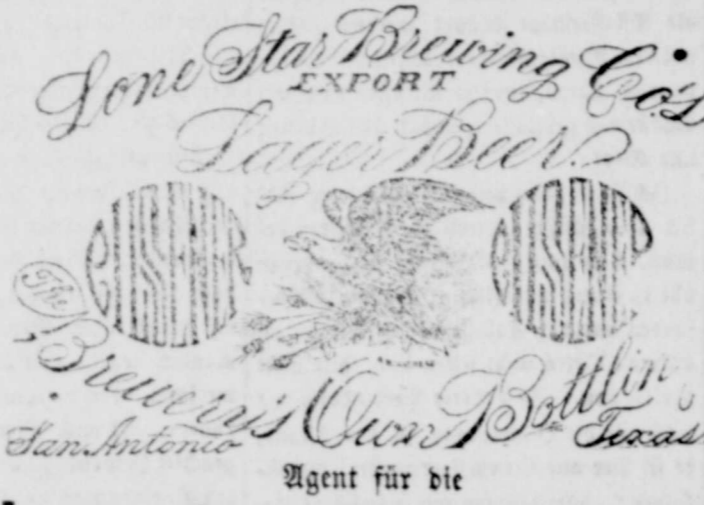 Lone Star Brewing Co's
EXPORT
Lager Beer
The
Brewery's Own Bottlin
San Antonio Texas
Agent für die